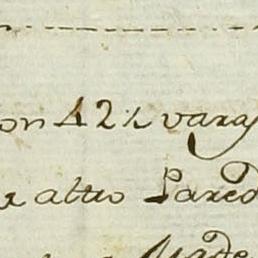 on 42½ varas
altto Pared
Made